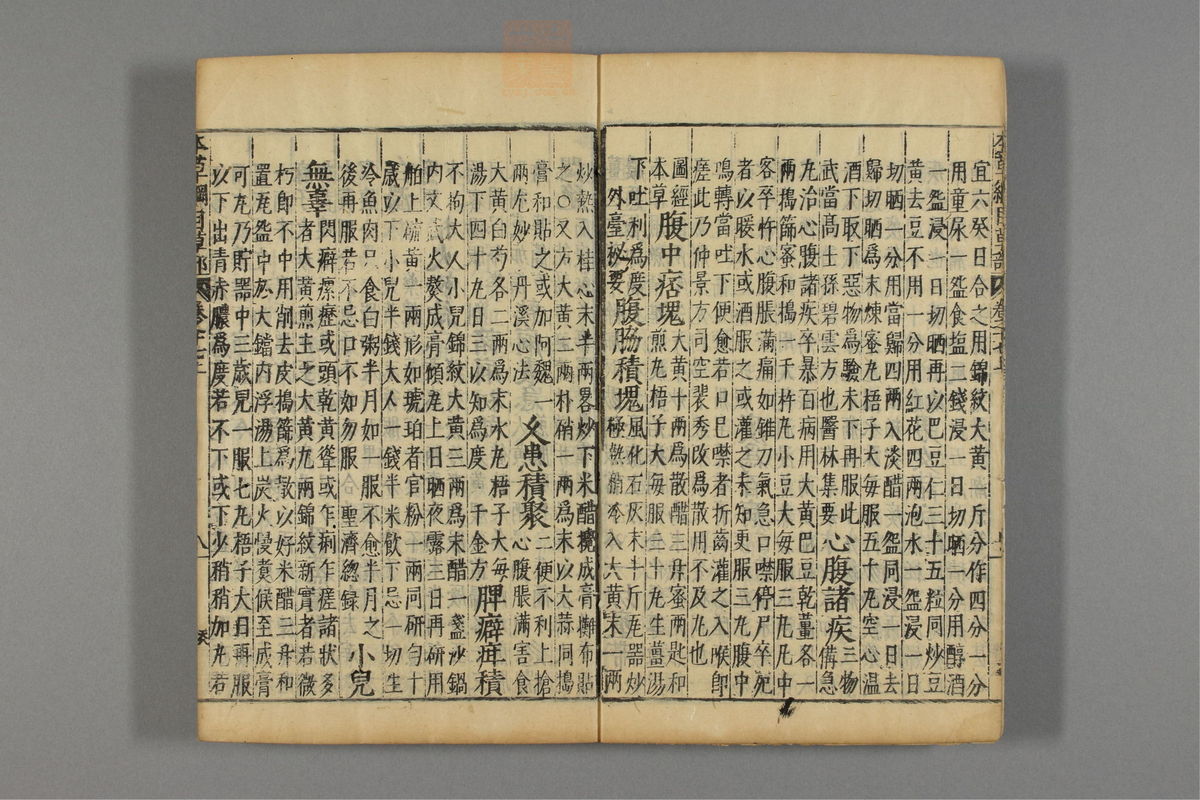 宜六癸日合之用錦紋大黃一斤分作四分一分
用童尿一盌食塩二錢浸一日切晒一分用醇酒
一盌浸一日切晒再以巴豆仁三十五粒同炒豆
黃去豆不用一分用紅花四兩泡水一盌浸一日
切晒一分用當歸四兩入淡醋一盌同浸一日去
歸切晒爲末煉蜜丸梧子大每服五十丸空心温
酒下取下惡物爲驗未下再服此
武當髙士孫碧雲方也醫林集要心腹諸疾三物備急
丸治心腹諸疾卒暴百病用大黃巴豆乾薑各一
兩搗篩蜜和搗一千杵丸小豆大每服三丸凡中
客卒忤心腹脹滿痛如錐刀氣急口噤停尸卒死
者以暖水或酒服之或灌之未知更服三丸腹中
鳴轉當吐下便愈若口已噤者折齒灌之入喉卽
瘥此乃仲景方司空裴秀改爲散用不及丸也
圖經本草腹中痞塊大黃十兩爲散醋三升蜜兩匙和
煎丸梧子大每服三十丸生薑湯
下吐利爲度
外臺秘要腹脇積塊風化石灰末半斤瓦器炒
極熱稍冷入大黃末一兩
炒熱入桂心末半兩畧炒下米醋攪成膏攤布貼
之○又方大黃二兩朴硝一兩爲末以大蒜同搗
膏和貼之或加阿魏一
兩尤妙丹溪心法乆患積聚二便不利上搶
心腹脹滿害食
大黃白芍各二兩爲末水丸梧子大每
湯下四十丸日三以知爲度千金方脾癖疳積
不拘大人小兒錦紋大黃三兩爲末醋一盞沙鍋
内文武火熬成膏傾瓦上日晒夜露三日再研用
舶上硫黃一兩形如琥珀者官粉一兩同研勻十
歲以下小兒半錢大人一錢半米飲下忌一切生
冷魚肉只食白粥半月如一服不愈半月之
後再服若不忌口不如勿服聖濟總錄小兒
無辜閃癖瘰癧或頭乾黃聳或乍痢乍瘥諸狀多
者大黃煎主之大黃九兩錦紋新實者若微
朽卽不中用削去皮搗篩爲散以好米醋三升和
置瓦盌中於大鐺内浮湯上炭火慢煑候至成膏
可丸乃貯器中三歲兒一服七丸梧子大日再服
以下出青赤膿爲度若不下或下少稍稍加丸若
本草綱目草部
卷十七
本草綱目草部
卷十七
八